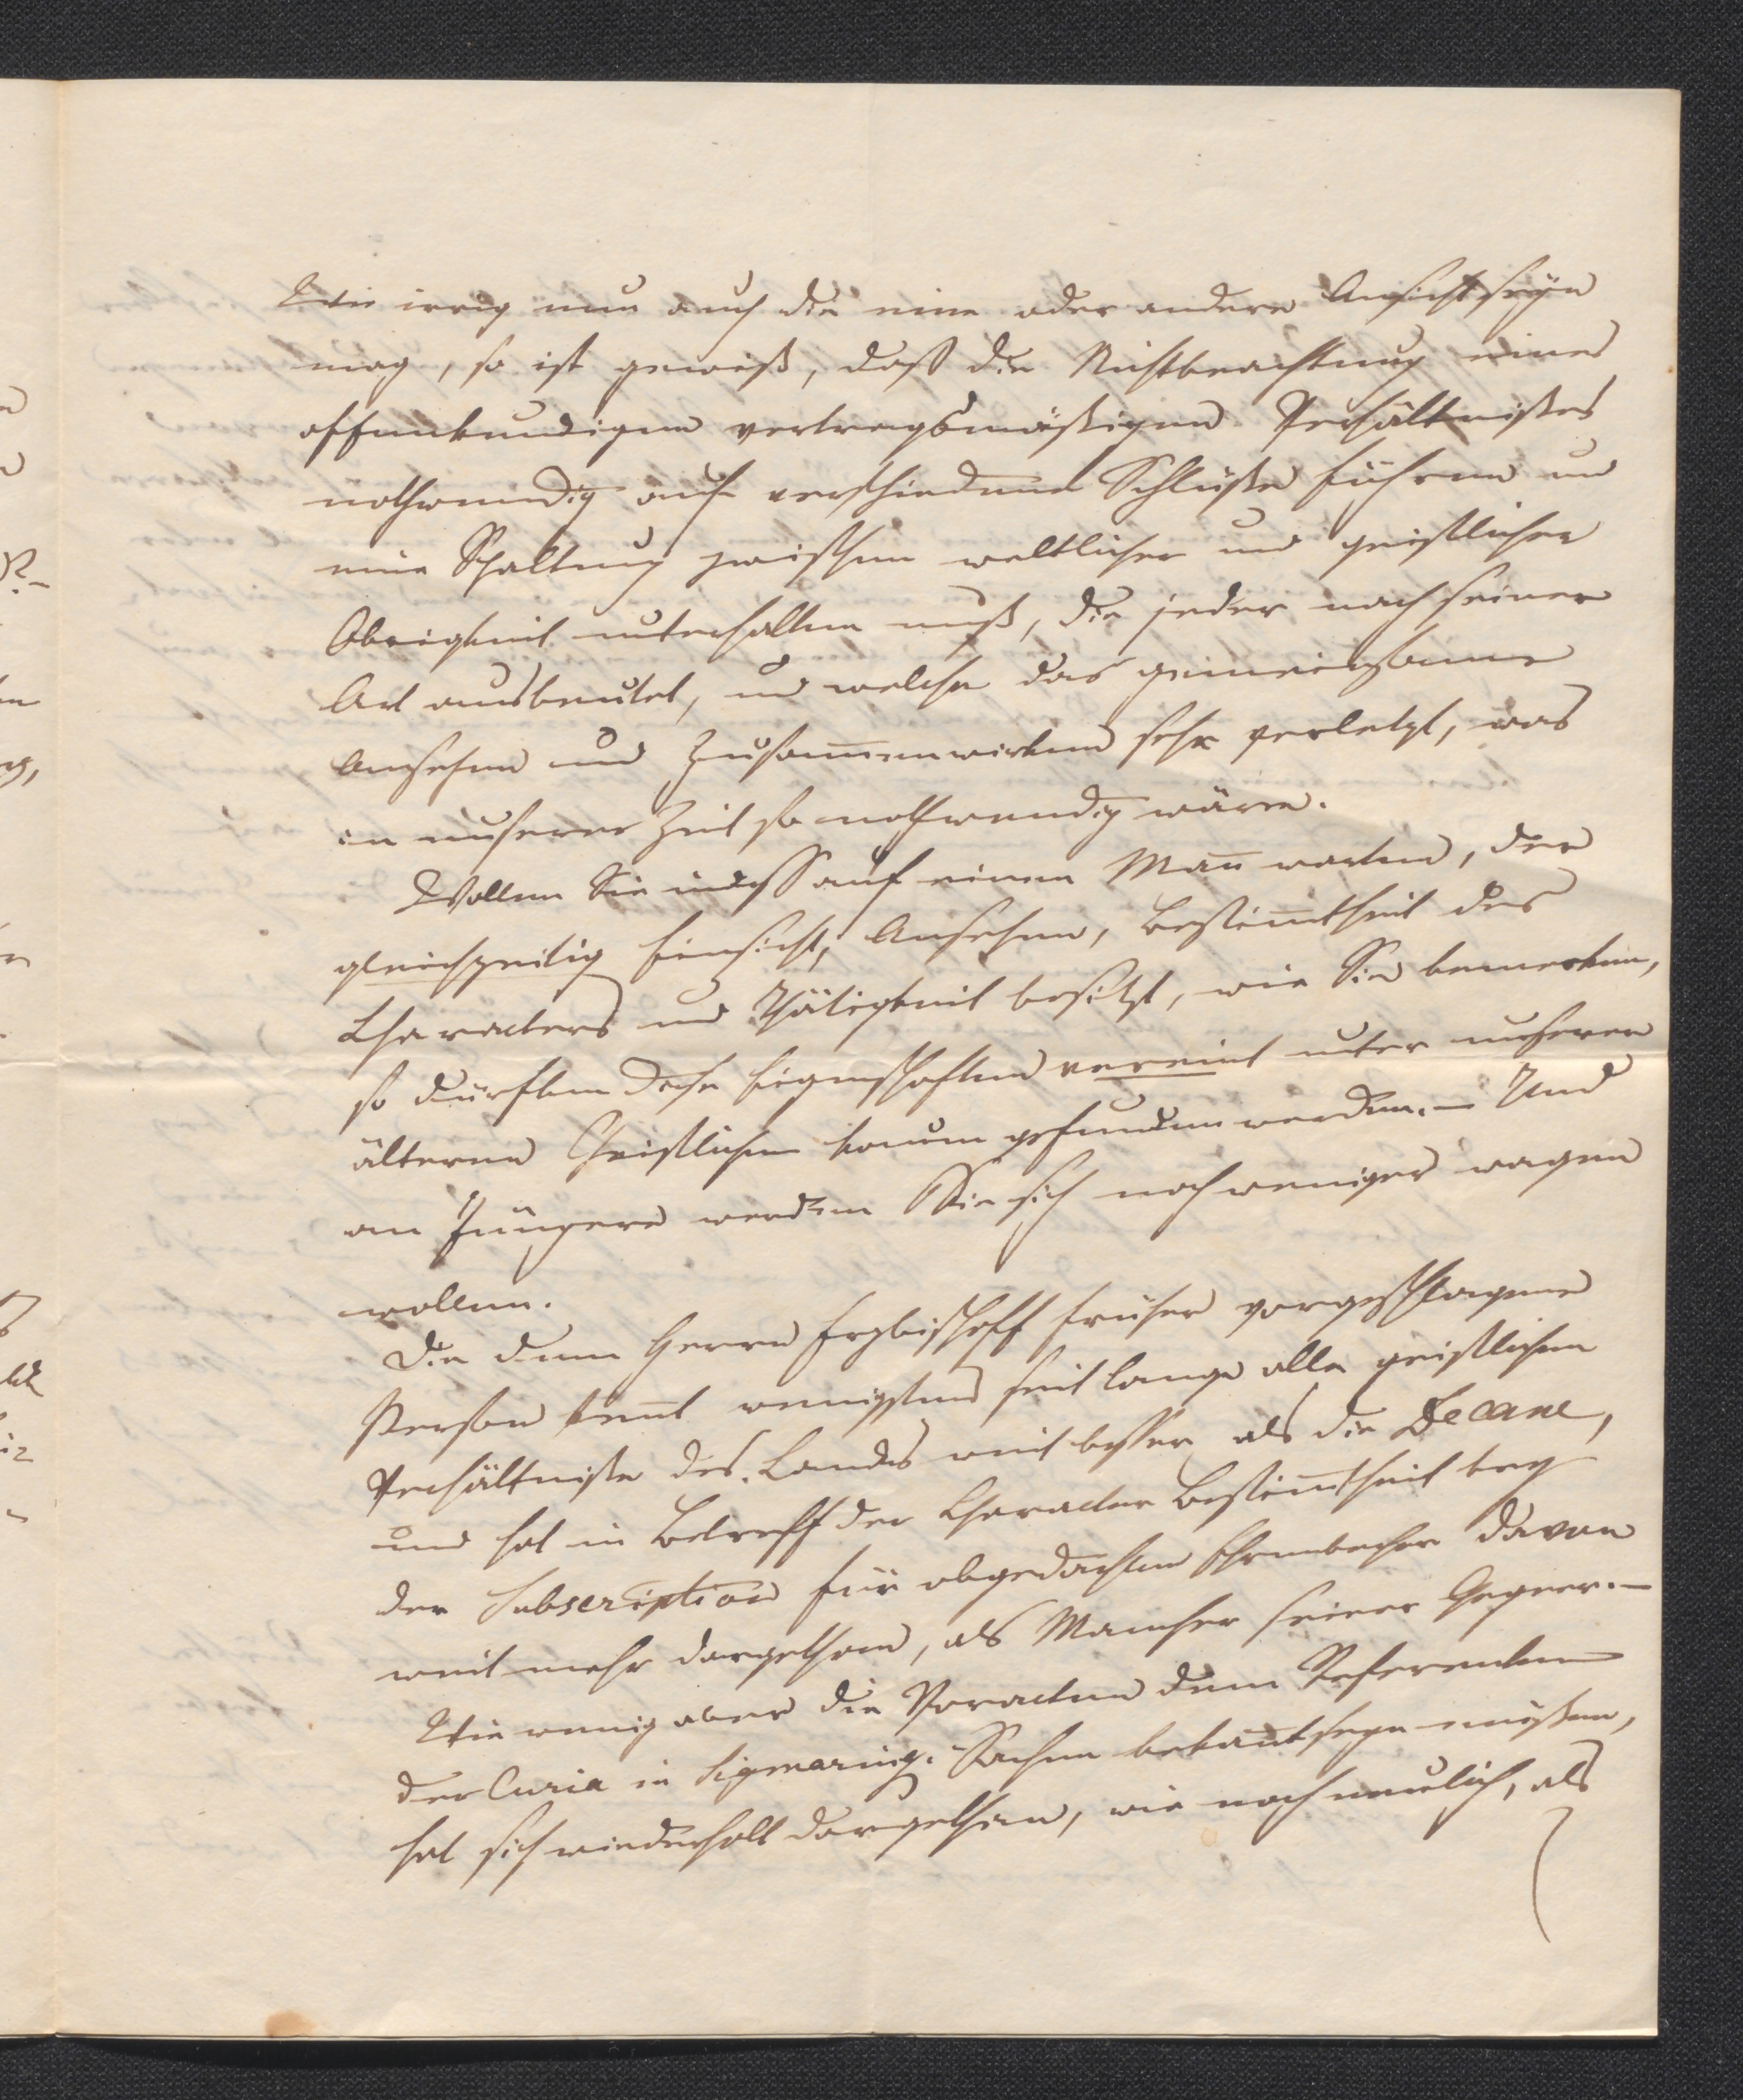 Wie irrig nun auch die eine oder andere Ansicht seÿn
mag, so ist gewiß, daß die Nichtbeachtung eines
offenkundigen vertragsmäßigen Verhältnißes
nothwendig auf verschiedene Schlüße führen und
eine Spaltung zwischen weltlicher und geistlicher
Obrigkeit unterhalten muß, die jeder nach seiner
Art ausbeutet, und welche das gemeinsame
Ansehen und Zusam̄enwirken sehr verletzt, was
in unserer Zeit so nothwendig wäre.
Wollen Sie indeß auf einen Man̄ warten, der
gleichzeitig Einsicht, Ansehen, Bestim̄theit des
Characters und Thätigkeit besitzt, wie Sie bemerken,
so dürften diese Eigenschaften vereint unter unseren
älteren Geistlichen kaum gefunden werden. – Und
an Jüngere werden Sie sich noch weniger wagen
wollen.
Die dem Herrn Erzbischoff früher vorgeschlagene
Person ken̄t wenigstens seit lange alle geistlichen
Verhältniße des Landes weit besser als die Decane,
und hat in Betreff der Character Bestim̄theit bey
der Subscription für obgedachten davon
weit mehr dargethan, als Mancher seiner Gegner. –
Wie wenig aber die Voracten dem Referenten
der Curia in Sigmaring. Sachen bekan̄t seyn müßen,
hat sich wiederholt dargethan, wie noch neulich, als